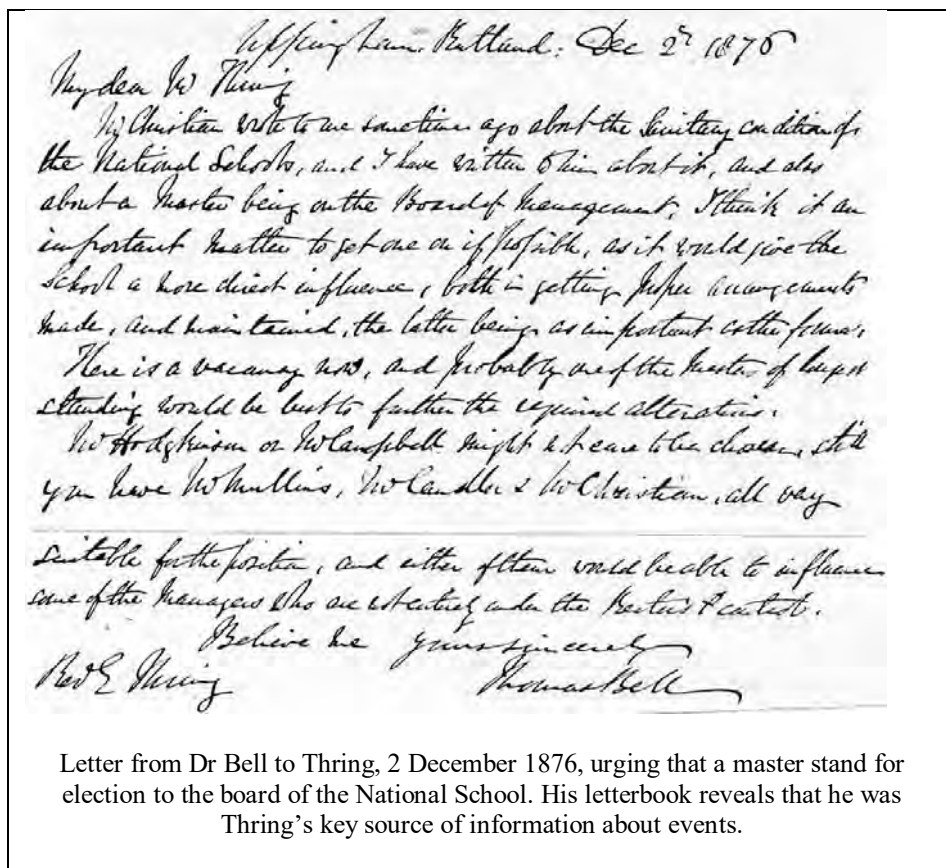 Uppingham. Rutland: Dec 2nd 1876
My dear Mr Thring
Mr Christian wrote to me sometime ago about the Sanitary condition of
the National Schools, and I have written to him about it, and also
about a Master being on the Board of Management. I think it an
important matter to get one on if possible, as it would give the
School a more direct influence, both in getting proper arrangements
made, and maintained, the latter being as important as the former.
There is a vacancy now, and probably one of the Masters of longest
standing would be best to further the required alterations.
Mr Hodgkinson or Mr Campbell might not care to be chosen, still
you have Mr Mullins, Mr Candler & Mr Christian, all very
suitable for the position, and either of them would be able to influence
some of the Managers who are not entirely under the Rector's control.
Believe me yours sincerely
Revd E Thring Thomas Bell
Letter from Dr Bell to Thring, 2 December 1876, urging that a master stand for
election to the board of the National School. His letterbook reveals that he was
Thring's key source of information about events.